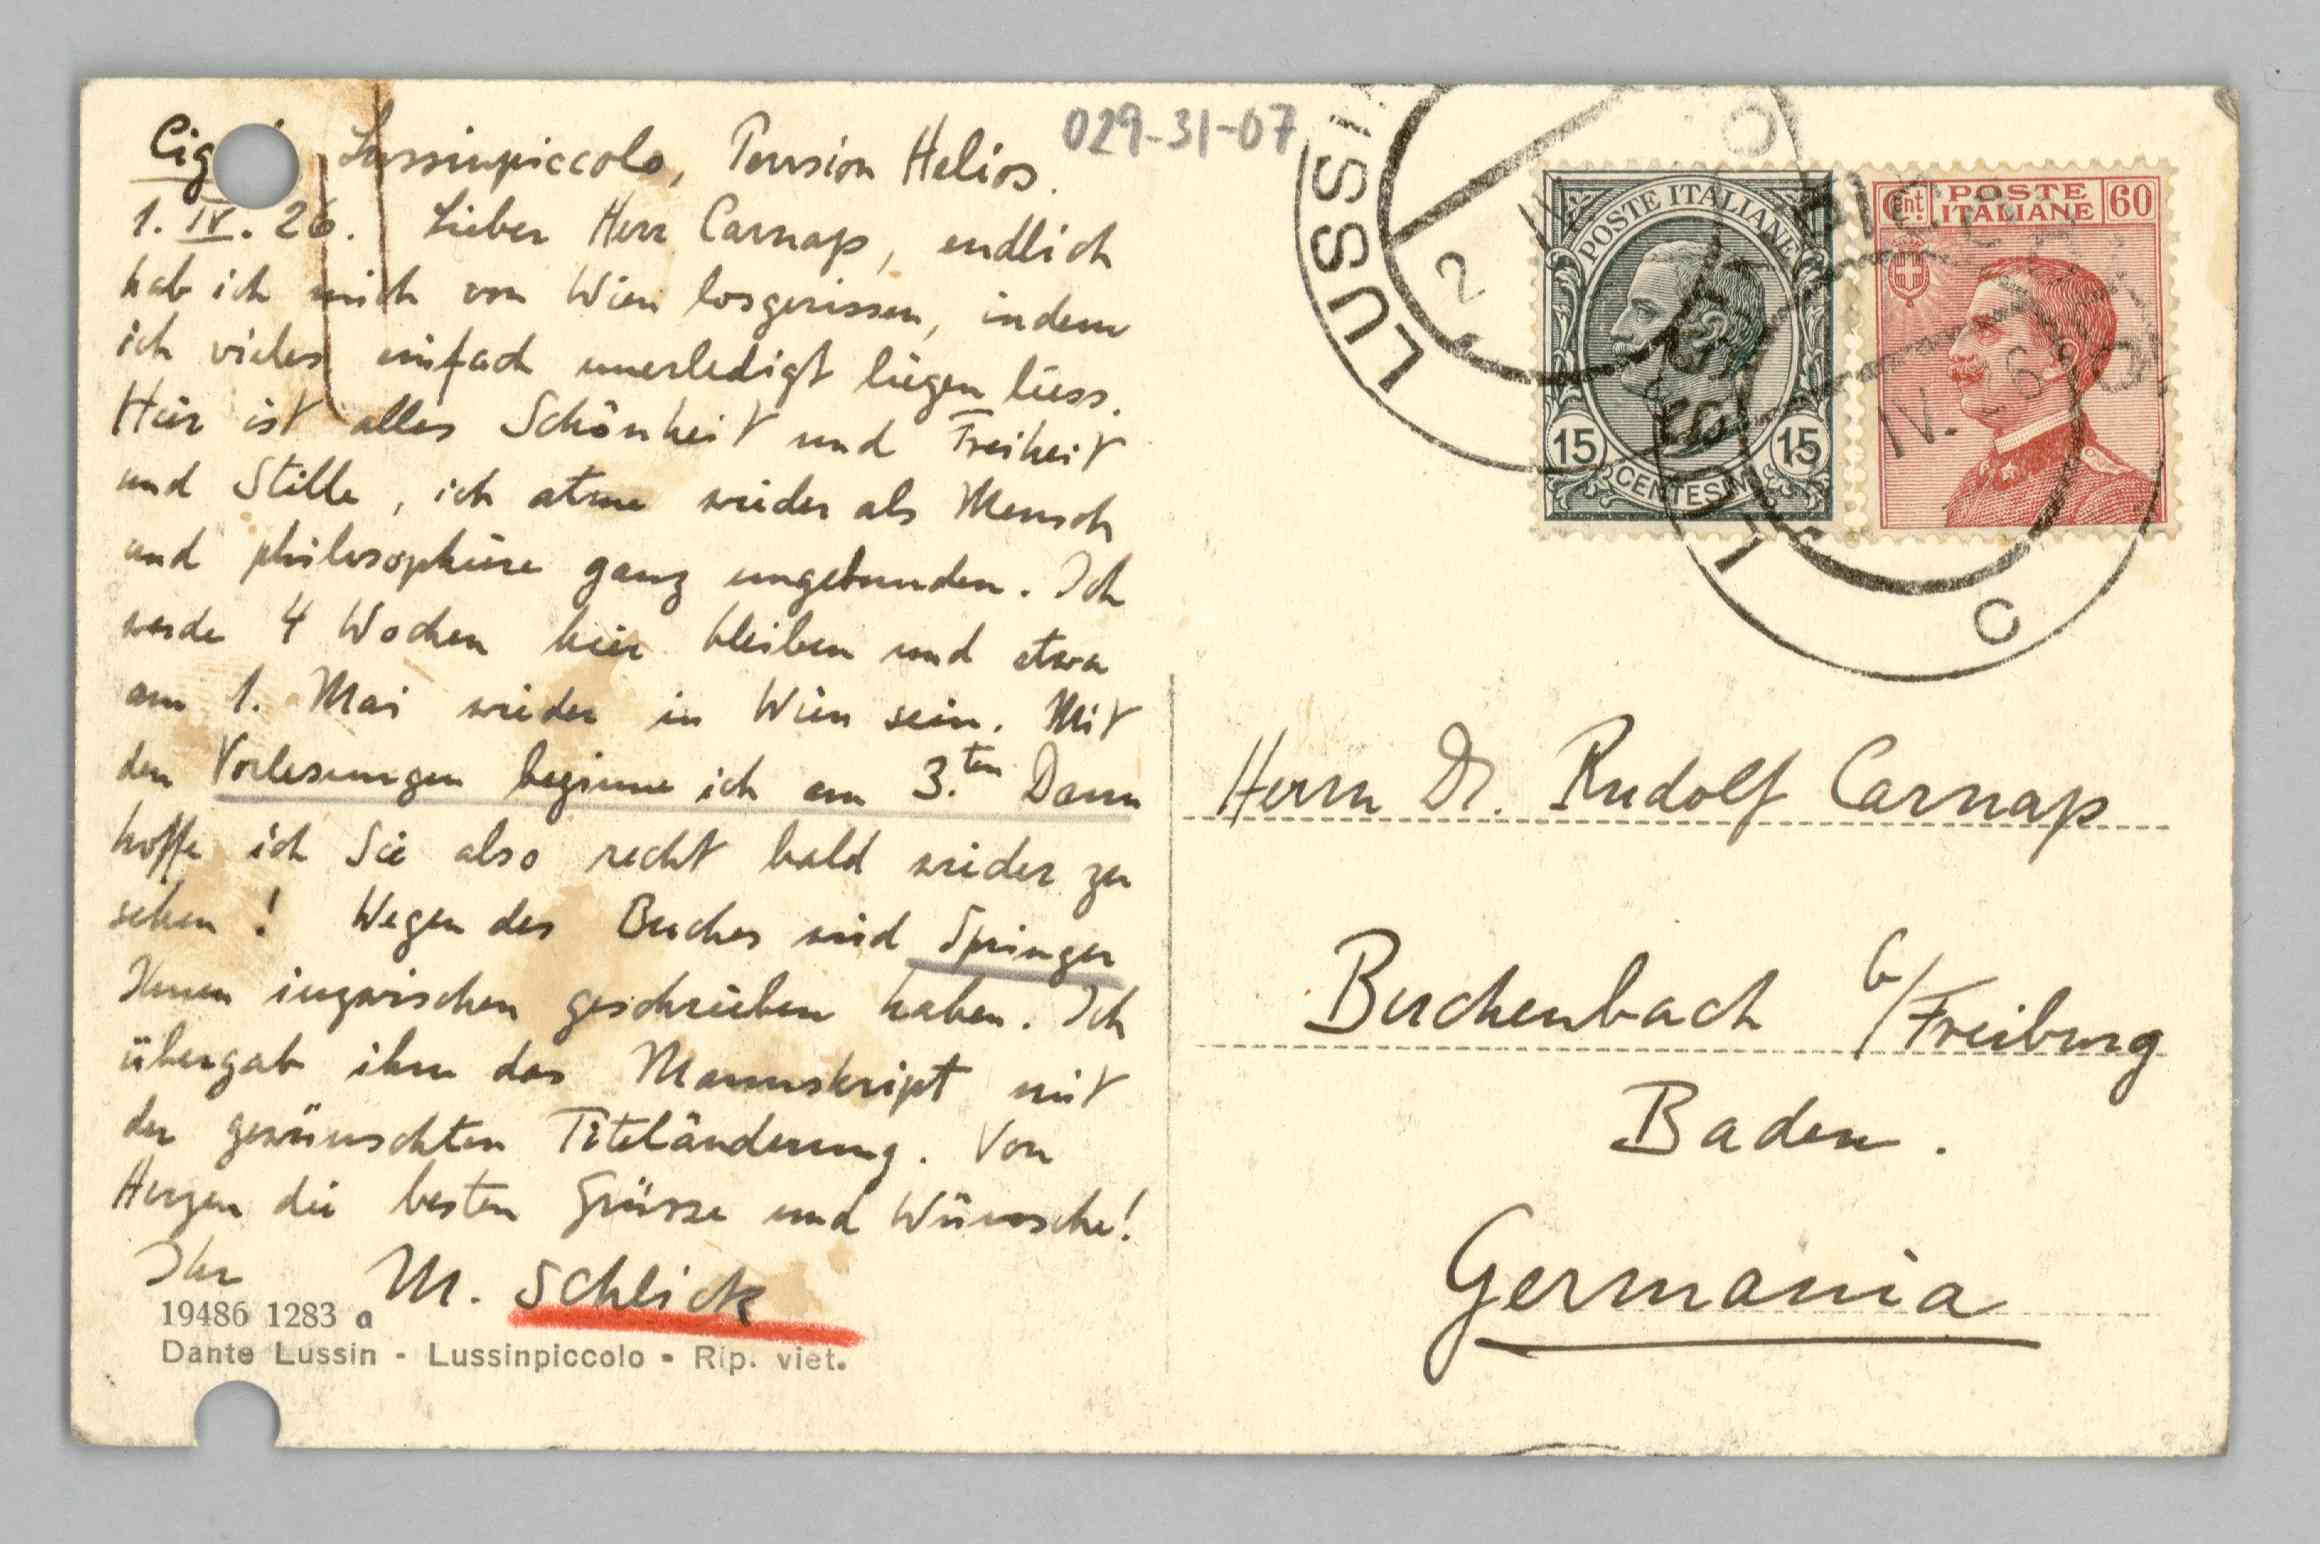 Cig Lussinpiccolo, Pension Helios.
1. IV. 26. Lieber Herr Carnap, endlich
hab ich mich von Wien losgerissen, indem
ich vieles einfach unerledigt liegen liess.
Hier ist alles Schönheit und Freiheit
und Stille, ich atme wieder als Mensch
und philosophiere ganz ungebunden. Ich
werde 4 Wochen hier bleiben und etwa
am 1. Mai wieder in Wien sein. Mit
den Vorlesungen beginne ich am 3.ten Dann
hoffe ich Sie also recht bald wieder zu
sehen! Wegen des Buches wird Springer
Ihnen inzwischen geschrieben haben. Ich
übergab ihm das Manuskript mit
der gewünschten Titeländerung. Von
Herzen die besten Grüsse und Wünsche!
Ihr M. Schlick
19486 1283 a
Dante Lussin - Lussinpiccolo - Rip. viet.
029-31-07
LUSSI
2
POSTE ITALIANE
15 15
CENTESIMI
Cent. POSTE ITALIANE 60
IV. 26
Herrn Dr. Rudolf Carnap
Buchenbach b/Freiburg
Baden.
Germania